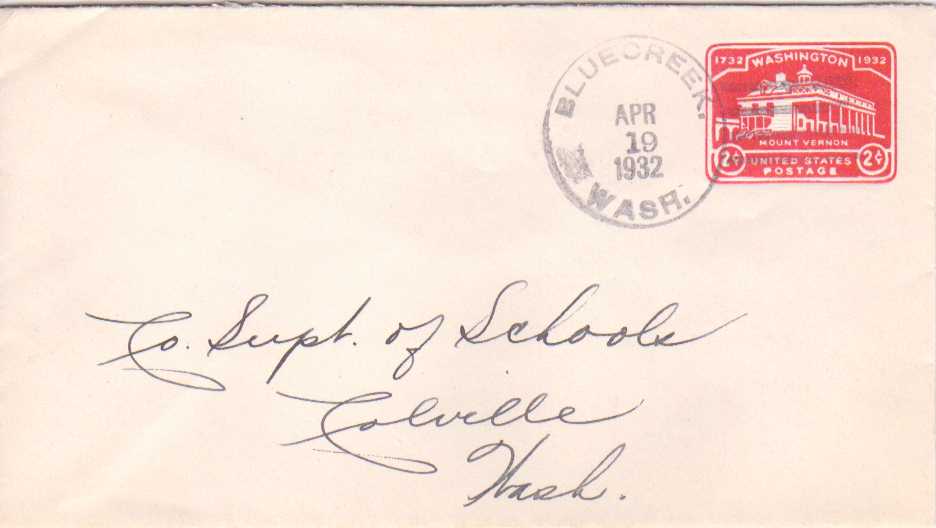 BLUECREEK.
APR
19
1932
WASH.
1732 WASHINGTON 1932
MOUNT VERNON
2¢ UNITED STATES 2¢
POSTAGE
Co. Supt. of Schools
Colville
Wash.